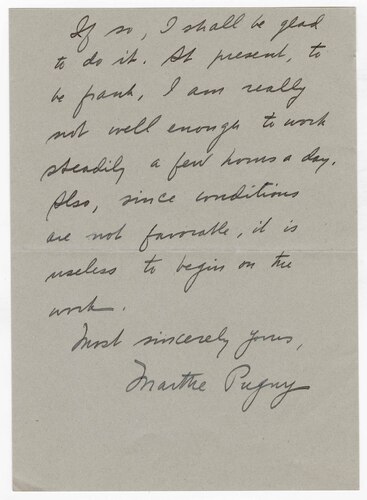 If so, I shall be glad
to do it. At present, to
be frank, I am really
not well enough to work
steadily a few hours a day.
Also, since conditions
are not favorable, it is
useless to begin on the
work.
Most sincerely yours,
Marthe Pugny